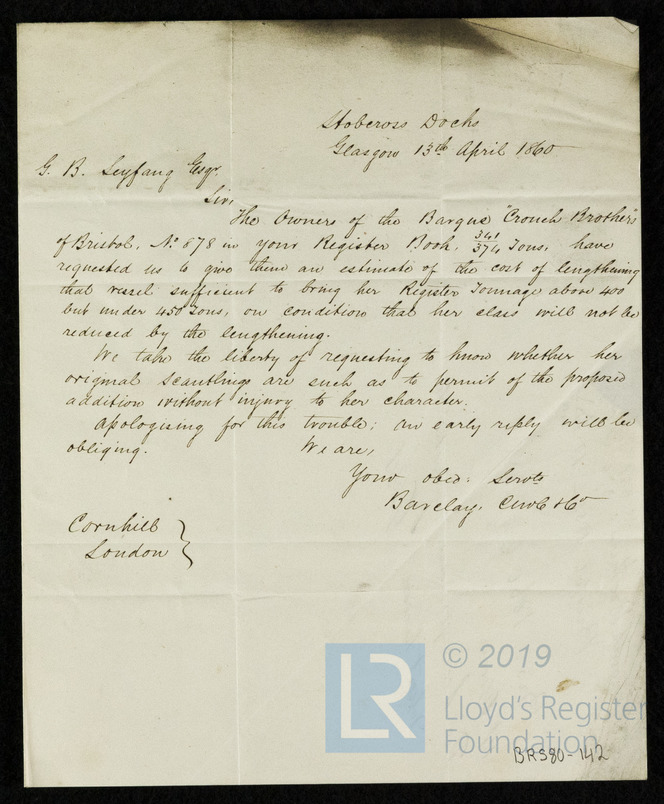 Stobcross Docks
Glasgow 13th April 1860
G. B. Seyfang Esqr,
Sir,
The Owners of the Barque "Crouch Brothers"
of Bristol, No 878 in your Register Book, 341/374 Tons, have
requested us to give them an estimate of the cost of lengthening
that vessel sufficient to bring her Register Tonnage above 400
but under 450 Tons, on condition that her class will not be
reduced by the lengthening.
We take the liberty of requesting to know whether her
original scantlings are such as to permit of the proposed
addition without injury to her character.
Apologising for this trouble; an early reply will be
obliging.
We are,
Your obed. Servts
Barclay, Curle & Co
Cornhill
London
© 2019
LR
Lloyd's Register
Foundation
BRS80-142